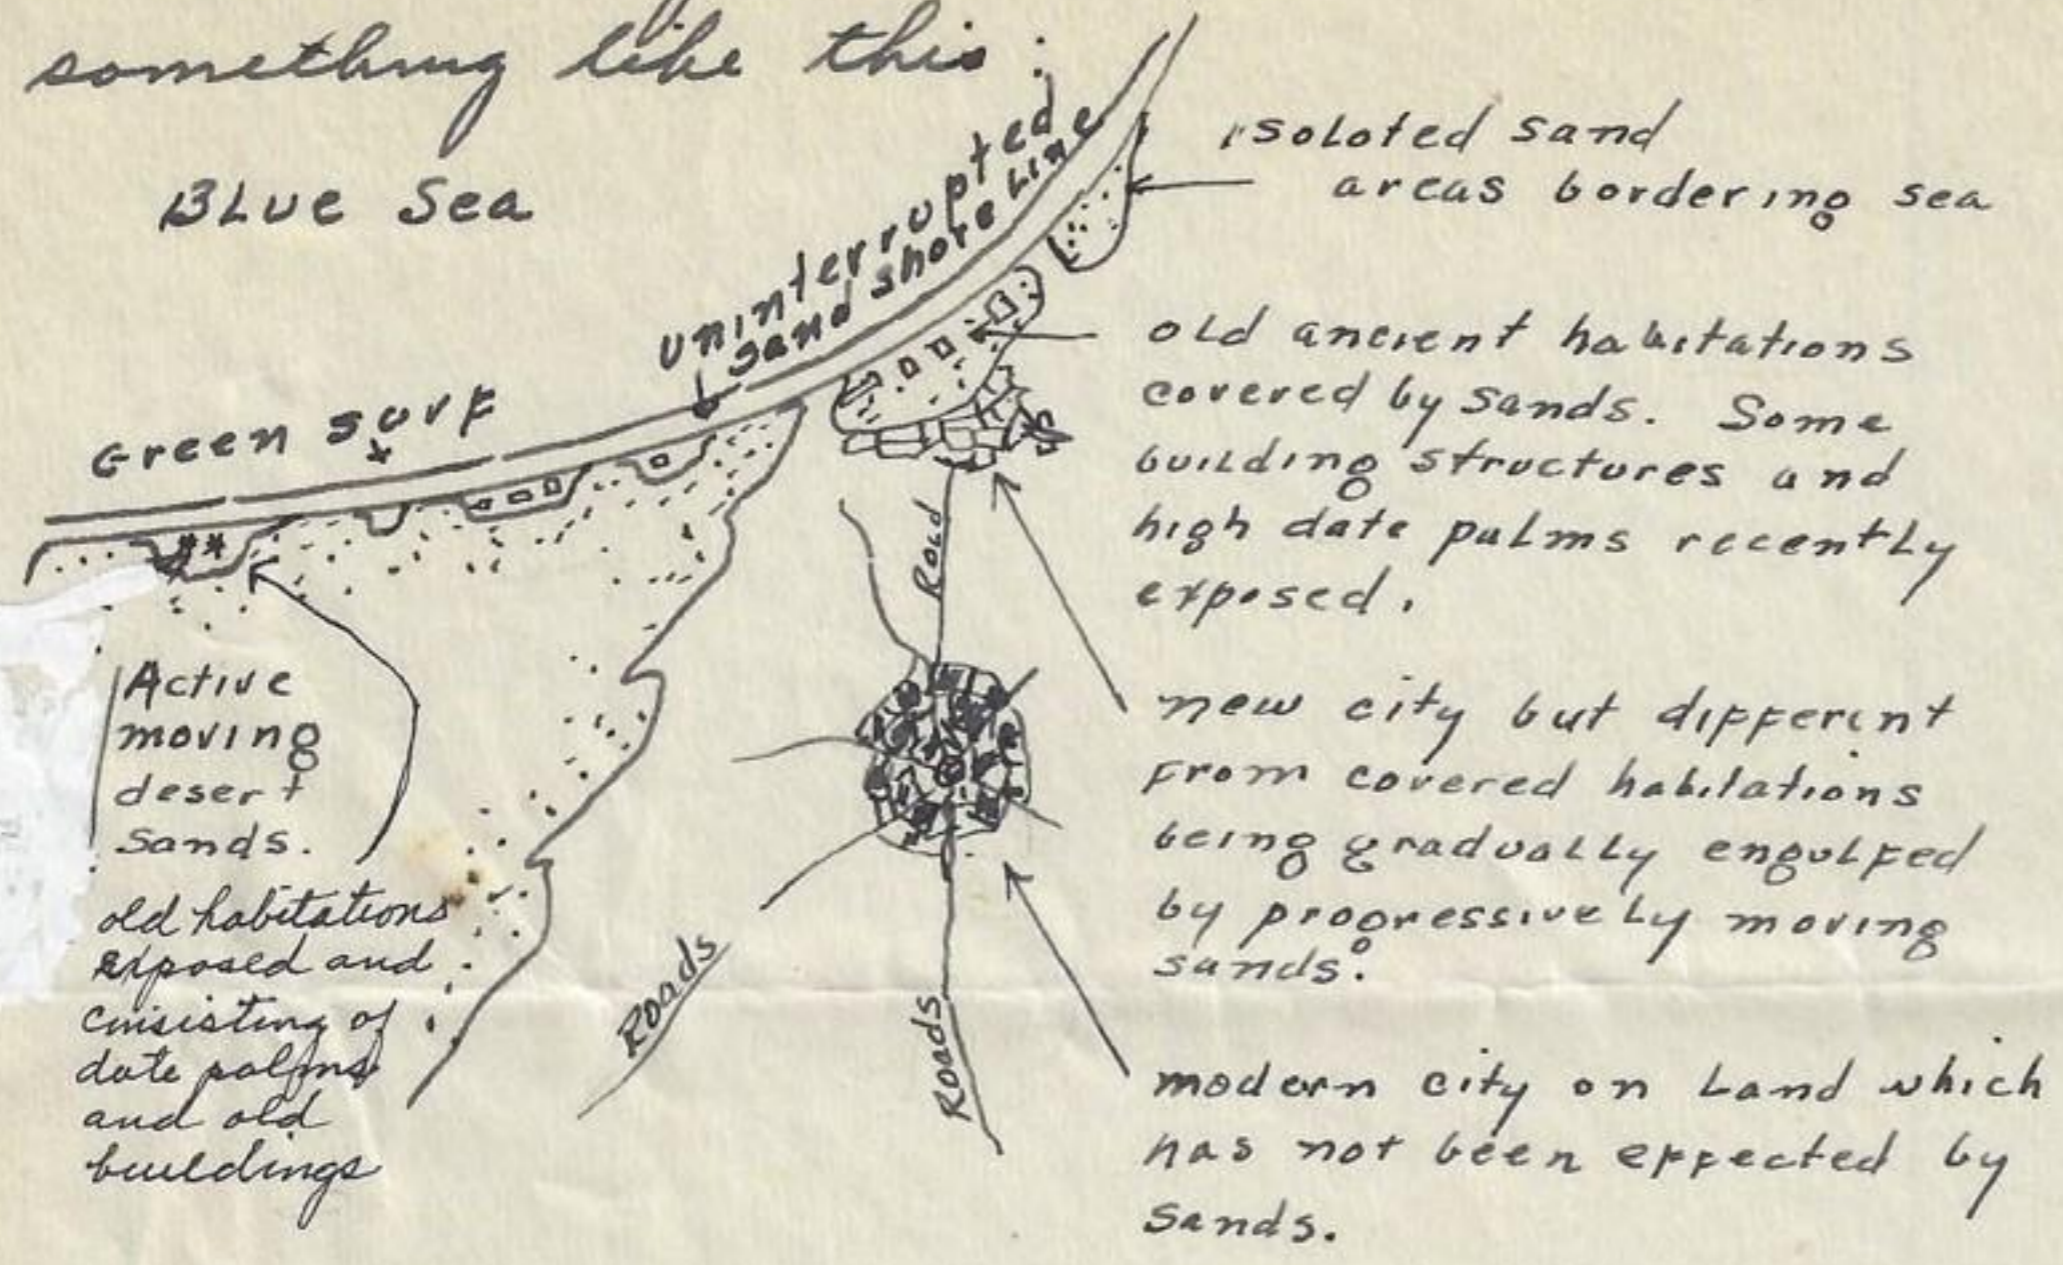 something like this:
Blue Sea
uninterrupted
sand shore Line
Green surf
isoloted sand
areas bordering sea
old ancient habitations
covered by sands. Some
building structures and
high date palms recently
exposed.
Road
Active
moving
desert
sands.
new city but different
from covered habitations
being gradually engulfed
by progressively moving
sands.
old habitations
exposed and
consisting of
date palms
and old
buildings
Roads
Roads
modern city on Land which
has not been effected by
sands.